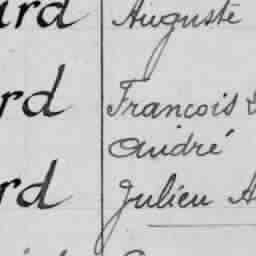 ard Auguste
rd François
André
rd Julien A